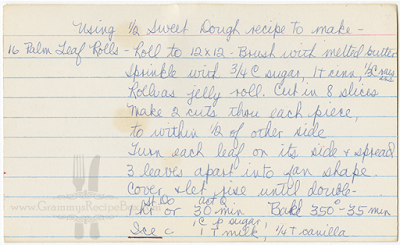 Using 1/2 Sweet Dough recipe to make -
16 Palm Leaf Rolls - Roll to 12x12 - Brush with melted butter
Sprinkle with 3/4 C sugar, 1 t cinn, 1/2 C
Roll as jelly roll. Cut in 8 slices
Make 2 cuts thru each piece,
to within 1/2 of other side
Turn each leaf on its side & spread
3 leaves apart into fan shape.
Cover & let rise until double -
1 hr or 30 min Bake 350° - 35 min
Ice c 1 C p sugar, 1 T milk, 1/4 t vanilla
www.GrannysRecipeBox.com